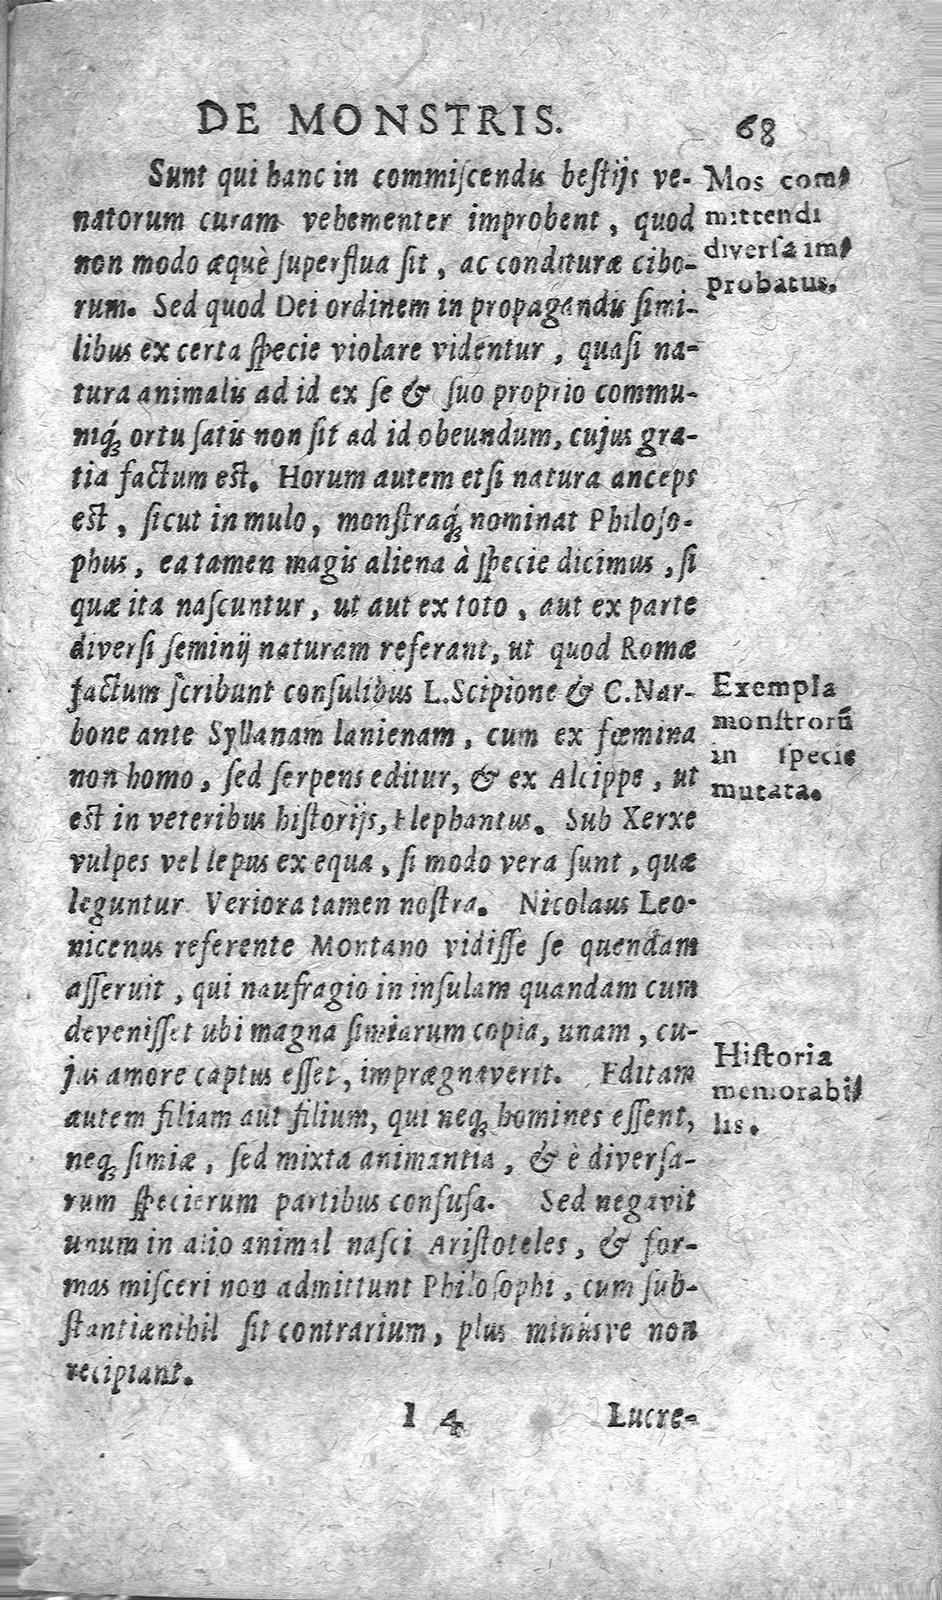 DE MONSTRIS.
68
Sunt qui hanc in commiſcendis beſtijs ve-
natorum curam vehementer improbent, quod
non modo æquè ſuperflua ſit, ac condituræ cibo-
rum. Sed quod Dei ordinem in propagandis ſimi-
libus ex certa ſpecie violare videntur, quaſi na-
tura animalis ad id ex ſe & ſuo proprio commu-
niq́; ortu ſatis non ſit ad id obeundum, cujus gra-
tia factum est. Horum autem etſi natura anceps
est, ſicut in mulo, monſtraq́; nominat Philoſo-
phus, ea tamen magis aliena à ſpecie dicimus, ſi
quæ ita naſcuntur, ut aut ex toto, aut ex parte
diverſi ſeminij naturam referant, ut quod Romæ
factum ſcribunt conſulibus L. Scipione & C. Nar-
bone ante Syllanam lanienam, cum ex fœmina
non homo, ſed ſerpens editur, & ex Alcippe, ut
est in veteribus hiſtorijs, Elephantus. Sub Xerxe
vulpes vel lepus ex equa, ſi modo vera ſunt, quæ
leguntur Veriora tamen noſtra. Nicolaus Leo-
nicenus referente Montano vidiſſe ſe quendam
aſſeruit, qui naufragio in inſulam quandam cum
deveniſſet ubi magna ſimiarum copia, unam, cu-
jus amore captus eſſet, imprægnaverit. Editam
autem filiam aut filium, qui neq; homines eſſent,
neq; ſimiæ, ſed mixta animantia, & è diverſa-
rum ſpecierum partibus conſuſa. Sed negavit
unum in alio animal naſci Ariſtoteles, & for-
mas miſceri non admittunt Philoſophi, cum ſub-
ſtantiæ nihil ſit contrarium, plus minúsve non
recipiant.
I 4
Lucre-
Mos com-
mittendi
diverſa im-
probatus.
Exempla
monſtrorū
in ſpecie
mutata.
Hiſtoria
memorabi-
lis.